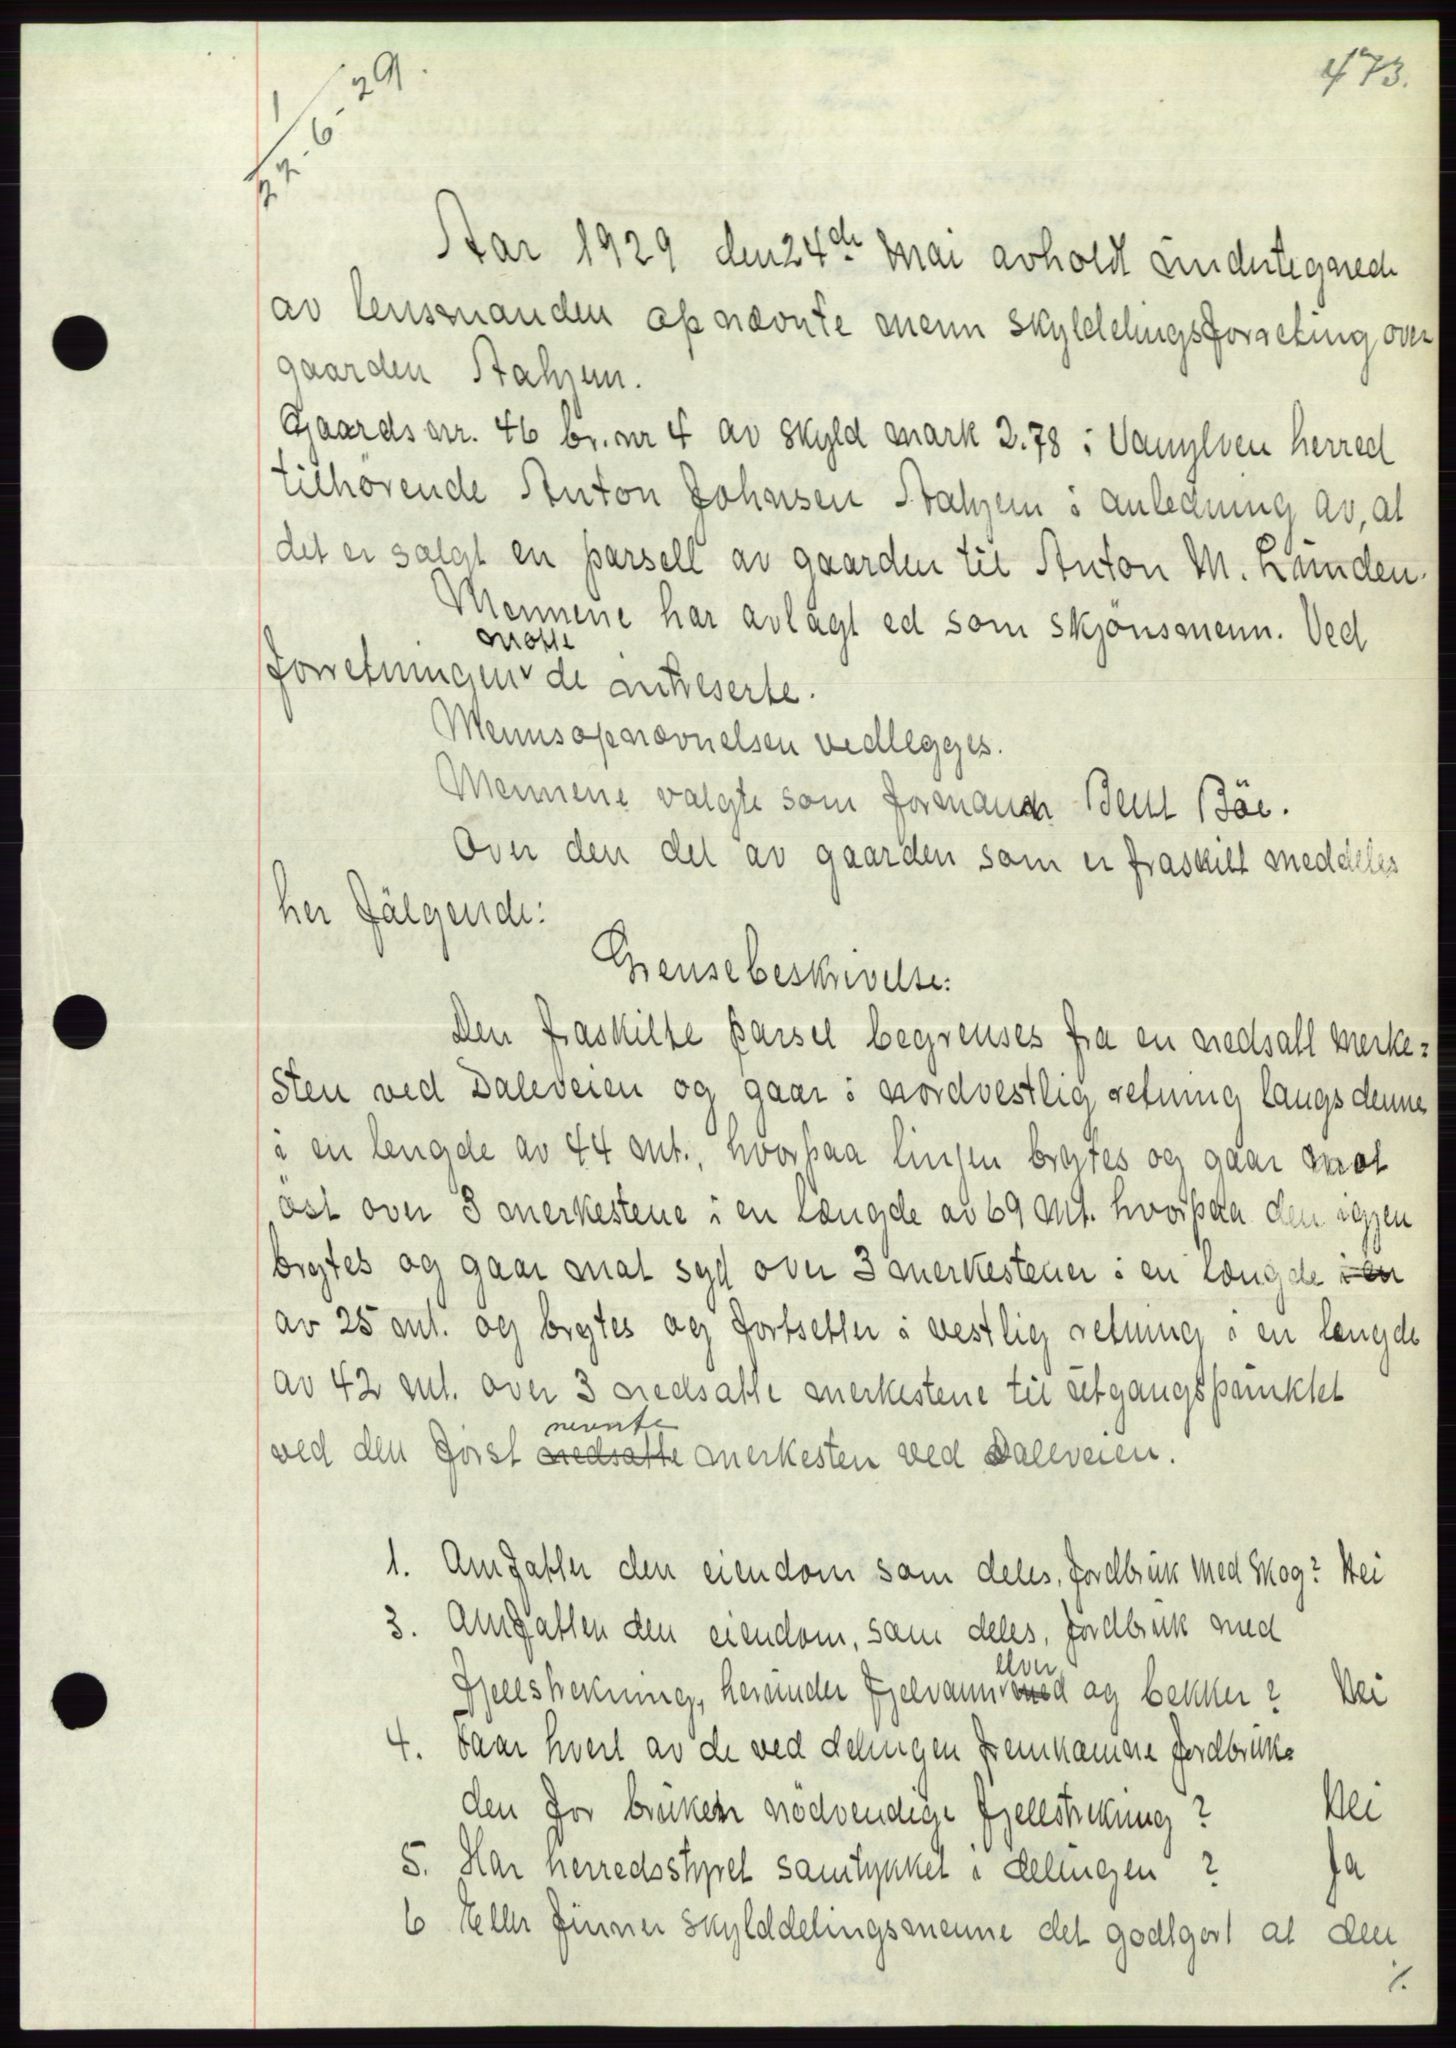 473.
1
22-6-29.
Aar 1929 den 24de Mai avholdt undertegnede
av lensmanden opnævnte menn skylddelingsforreting over
gaarden Aahjem.
Gaards nr. 46 br. nr 4 av skyld mark 2.78 i Vanylven herred
tilhörende Anton Johnsen Aahjem i anledning av, at
det er solgt en parsell av gaarden til Anton M. Lunden.
Mennene har avlagt ed som skjönsmenn. Ved
motte
forretningen v de intreserte.
Mennsopnævnelsen vedlegges.
Mennene valgte som formann Bent Böe.
Over den del av gaarden som er fraskilt meddeles
her fölgende:
Grensebeskrivelse:
Den fraskilte parsel begrenses fra en nedsatt merke=
sten ved Daleveien og gaar i nordvestlig retning langs denne
i en lengde av 44 mt., hvorpaa linjen brytes og gaar mot
öst over 3 merkestene i en længde av 69 mt. hvorpaa den igjen
brytes og gaar mot syd over 3 merkestener i en længde i en
av 25 mt. og brytes og fortsetter i vestlig retning i en lengde
av 42 mt. over 3 nedsatte merkestene til utgangspunktet
nevnte
ved den först nedsatte merkesten ved Daleveien.
1. Omfatter den eiendom som deles, jordbruk med skog? Nei
3. Omfatten den eiendom, som deles, jordbruk med
elver
fjellstrekning, herunder fjelvann v med og bekker? Nei
4. Faar hvert av de ved delingen fremkomne jordbruk=
den for bruken nödvendige fjellstrekning? Nei
5. Har herredsstyret samtykket i delingen? Ja
6 Eller finner skylddelingsmenne det godtgort at den
%.